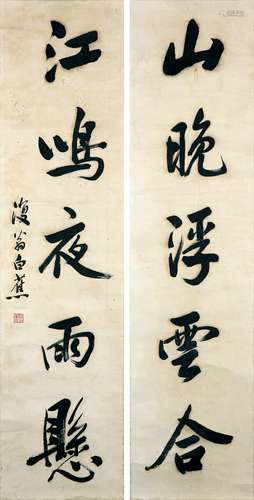 山晚浮雲合
江鳴夜雨懸
復翁白蕉